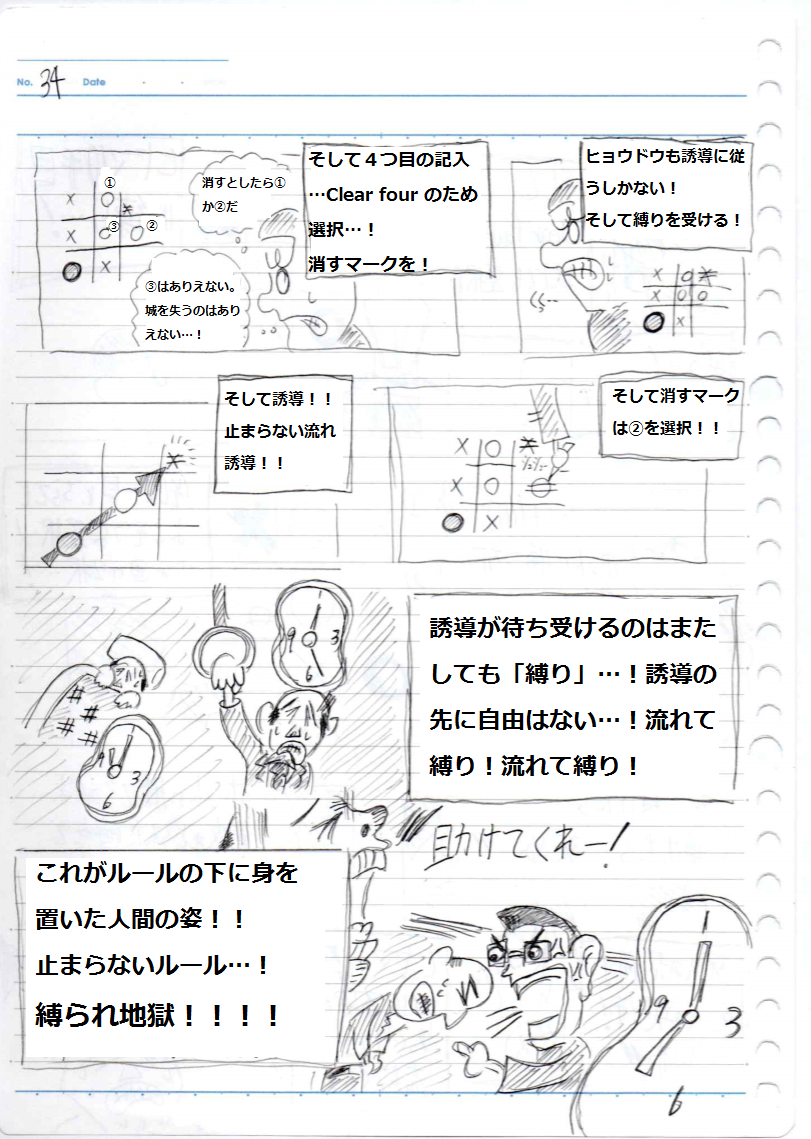 No. 34 Date
ヒョウドウも誘導に従
うしかない!
そして縛りを受ける!
× ○ *
× ○ ○
● ×
そして4つ目の記入
…Clear four のため
選択…!
消すマークを!
消すとしたら①
か②だ
③はありえない。
城を失うのはあり
えない…!
①
× ○ *
× ③ ○ ②
● ×
そして消すマーク
は②を選択!!
× ○ *
× ○ ○
● ×
そして誘導!!
止まらない流れ
誘導!!
*
誘導が待ち受けるのはまた
しても「縛り」…!誘導の
先に自由はない…!流れて
縛り!流れて縛り!
9 3
6
9 3
6
助けてくれー!
これがルールの下に身を
置いた人間の姿!!
止まらないルール…!
縛られ地獄!!!!
9 3
6